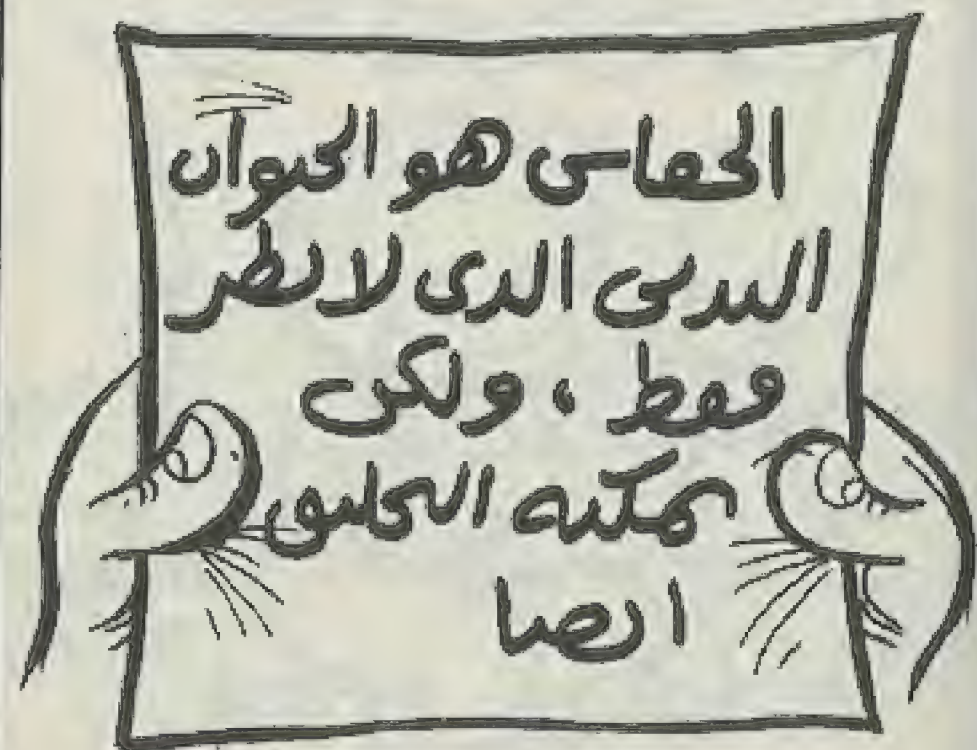 الخفاش هو الحيوان
الثديي الذي لا يطير
فقط ، ولكن
يمكنه التحليق
ايضا